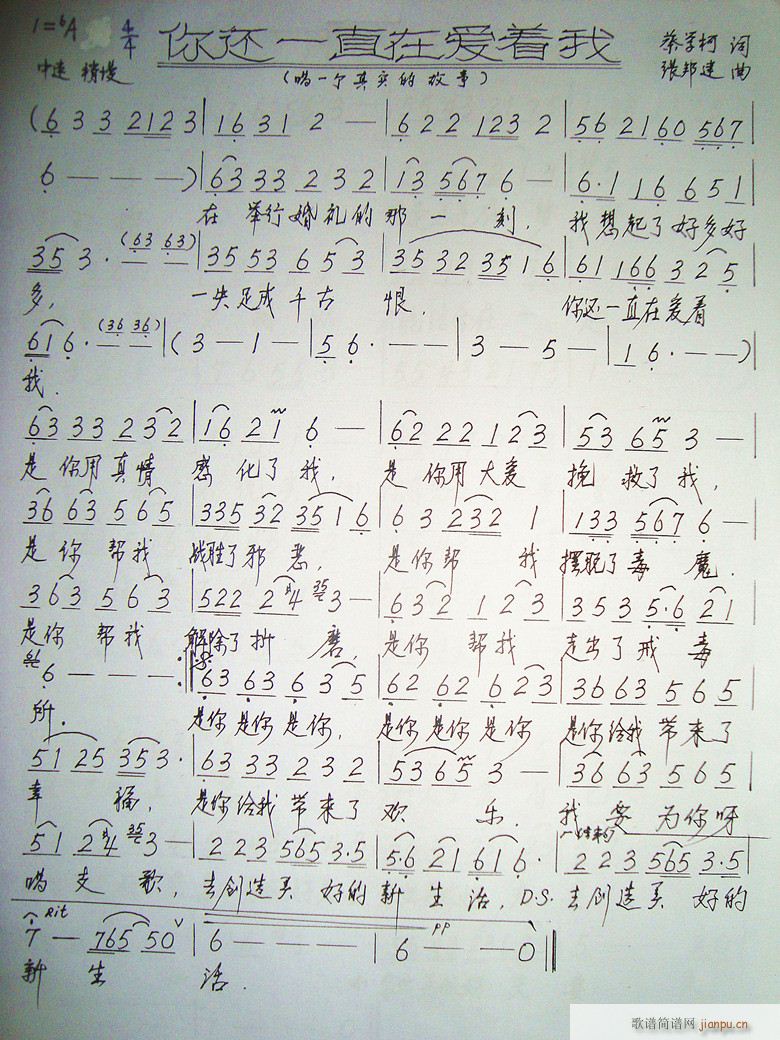 1=♭A 4/4 你还一直在爱着我 蔡学柯 词
中速 稍慢 (唱一个真实的故事) 张邦建 曲
(6 3 3 2123 | 16 31 2 — | 6 2 2 123 2 | 56 2160 567 |
6 — — — ) | 63 33 2 3 2 | 13 567 6 — | 6·1 16 6 5 1 |
在 举行婚礼的那一刻, 我想起了好多好
35 3· (63 63) | 35 53 6 5 3 | 35 32 35 1 6 | 61 166 3 2 5 |
多, 一失足成千古恨. 你还一直在爱着
61 6· (36 36) | (3 — 1 — | 5 6· — — | 3 — 5 — | 1 6· — — )
我.
63 33 2 3 2 | 16 21 6 — | 62 22 1 2 3 | 53 65 3 — |
是你用真情 感化了我, 是你用大爱 挽救了我,
36 63 5 6 5 | 335 32 35 1 6 | 6 3 232 1 | 133 567 6 — |
是你 帮我 战胜了邪恶, 是你帮 我 摆脱了毒魔.
3 63 5 6 3 | 522 2 4 3 — | 6 3 2 1 2 3 | 3 5 3 5·6 2 1 |
是你 帮我 解除了折磨, 是你 帮我 走出了戒毒
6 — — — :| 63 63 6 3 5 | 62 62 6 2 3 | 36 63 5 6 5 |
所. 是你是你是你, 是你是你是你 是你给我带来了
51 25 353· | 63 33 2 3 2 | 53 65 3 — | 36 63 5 6 5 |
幸福, 是你给我带来了 欢乐. 我要为你呀
51 2 4 3 — | 2 2 3 565 3·5 | 5·6 21 61 6· | 2 2 3 565 3·5 |
唱支歌, 去创造美好的新生活, D.S. 去创造美好的
Rit pp
7 — 765 50 | 6 — — — | 6 — — 0 ||
新生活.
歌谱简谱网 jianpu.cn